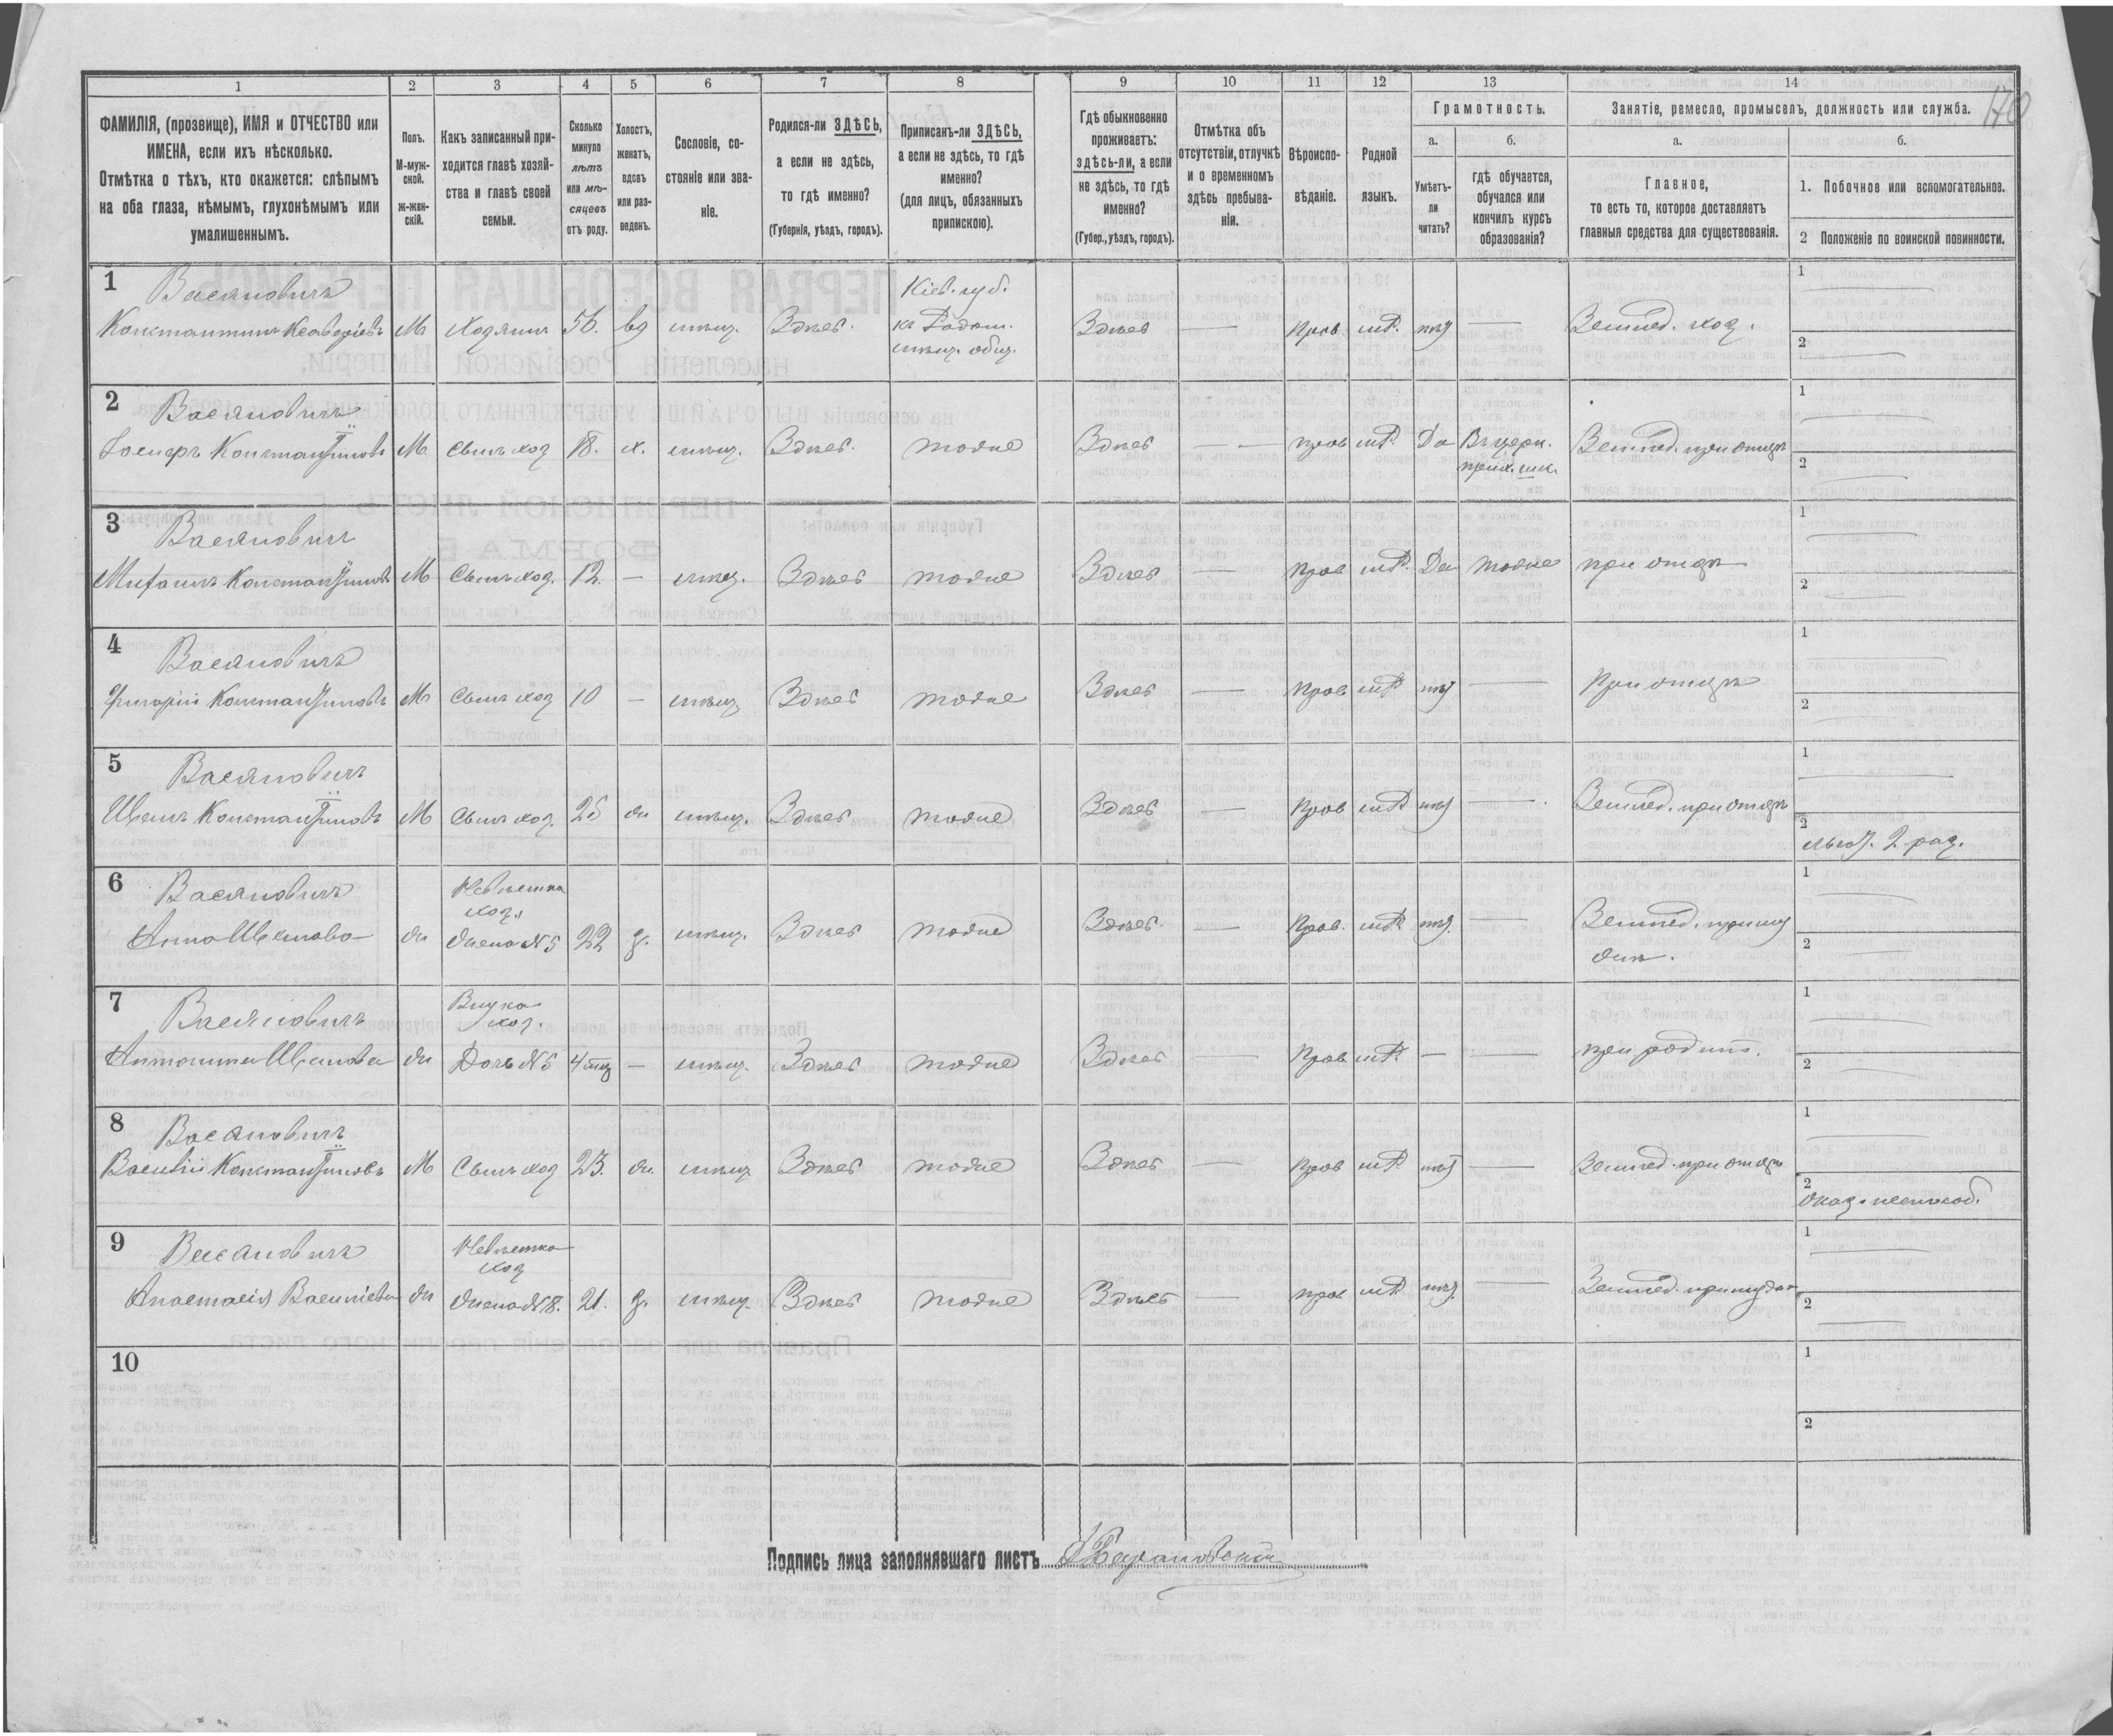 1 2 3 4 5 6 7 8 9 10 11 12 13 14
140
ФАМИЛІЯ, (прозвище), ИМЯ и ОТЧЕСТВО или
ИМЕНА, если ихъ нѣсколько.
Отмѣтка о тѣхъ, кто окажется: слѣпымъ
на оба глаза, нѣмымъ, глухонѣмымъ или
умалишеннымъ.
Полъ.
М-муж-
ской.
ж-жен-
скій.
Какъ записанный при-
ходится главѣ хозяй-
ства и главѣ своей
семьи.
Сколько
минуло
лѣтъ
или мѣ-
сяцевъ
отъ роду.
Холостъ,
женатъ,
вдовъ
или раз-
веденъ.
Сословіе, со-
стояніе или зва-
ніе.
Родился-ли ЗДѢСЬ,
а если не здѣсь,
то гдѣ именно?
(Губернія, уѣздъ, городъ).
Приписанъ-ли ЗДѢСЬ,
а если не здѣсь, то гдѣ
именно?
(для лицъ, обязанныхъ
припискою).
Гдѣ обыкновенно
проживаетъ:
здѣсь-ли, а если
не здѣсь, то гдѣ
именно?
(Губер., уѣздъ, городъ).
Отмѣтка объ
отсутствіи, отлучкѣ
и о временномъ
здѣсь пребыва-
ніи.
Вѣроиспо-
вѣданіе.
Родной
языкъ.
Грамотность.
а.
Умѣетъ-
ли
читать?
б.
гдѣ обучается,
обучался или
кончилъ курсъ
образованія?
Занятіе, ремесло, промыселъ, должность или служба.
а.
Главное,
то есть то, которое доставляетъ
главныя средства для существованія.
б.
1. Побочное или вспомогательное.
2 Положеніе по воинской повинности.
1 Васяновичъ Кіев. губ. 1
Константинъ Ксаверіевъ М Хозяинъ 56. вд мѣщ. Здѣсь. къ Радом. Здѣсь — прав мР. нѣт — Землед. хоз.
мѣщ. общ. 2
2 Васяновичъ 1
Іосифъ Константиновъ М Сынъ хоз 18. х. мѣщ. Здѣсь. тоже Здѣсь — прав мР. Да Въ церк. Землед. при отцѣ
прих. шк. 2
3 Васяновичъ 1
Михаилъ Константиновъ М Сынъ хоз. 12. — мѣщ. Здѣсь тоже Здѣсь — прав мР. Да тоже при отцѣ
2
4 Васяновичъ 1
Григорій Константиновъ М Сынъ хоз 10 — мѣщ Здѣсь тоже Здѣсь — прав мР нѣт — При отцѣ
2
5 Васяновичъ 1
Иванъ Константиновъ М Сынъ хоз. 25 ж мѣщ. Здѣсь тоже Здѣсь — прав мР нѣт — Землед. при отцѣ
2
льгот. 2 раз.
6 Васяновичъ Невѣстка 1
хоз.
Анна Иванова ж Жена №5 22 з. мѣщ. Здѣсь тоже Здѣсь. — прав. мР нѣт. — Землед. при му
жѣ. 2
7 Васяновичъ Внучка 1
хоз.
Антонина Иванова ж Дочь №5 4 мц — мѣщ. Здѣсь тоже Здѣсь — прав мР. — — при родит.
2
8 Васяновичъ 1
Василій Константиновъ М Сынъ хоз 23. ж. мѣщ Здѣсь тоже Здѣсь — прав мР нѣт — Землед. при отцѣ
2
оказ. неспособ.
9 Васяновичъ Невѣстка 1
хоз
Анастасія Василіева ж Жена №8. 21. з. мѣщ. Здѣсь тоже Здѣсь — прав мР нѣт. — Землед. при мужѣ
2
10 1
2
Подпись лица заполнявшаго листъ